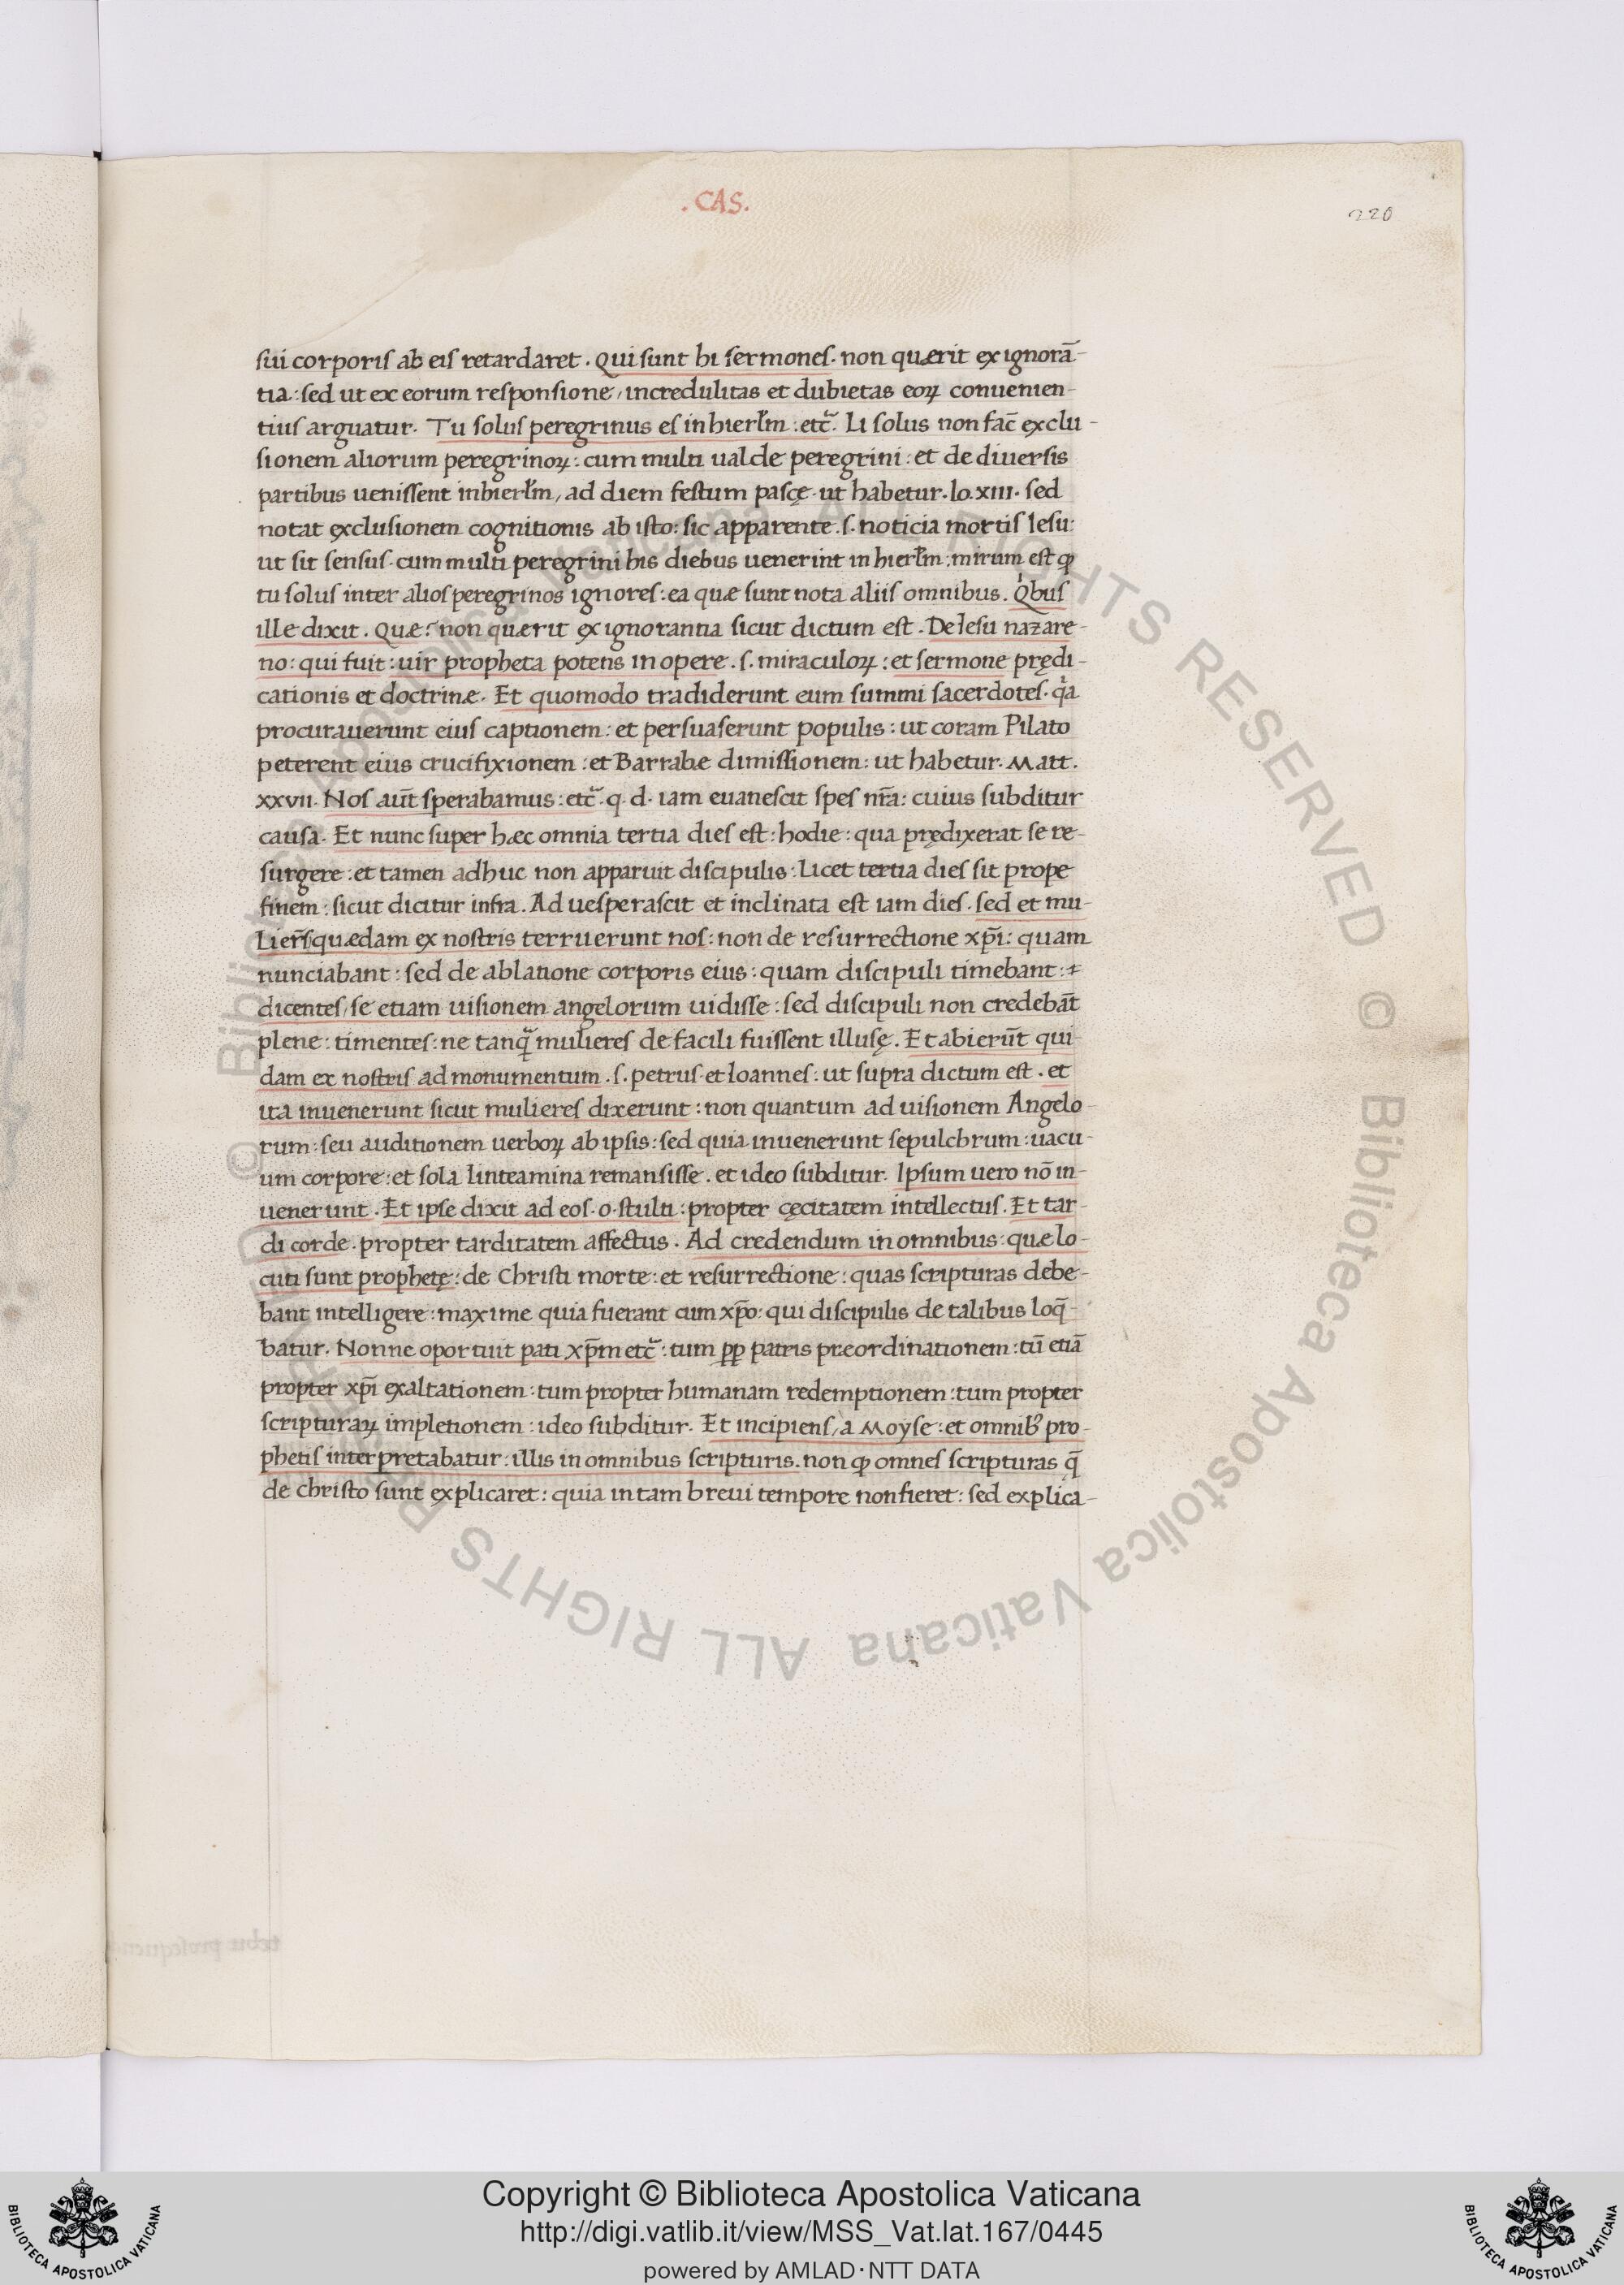 .CAS.
220
sui corporis ab eis retardaret. Qui sunt hi sermones. non quærit ex ignorā-
tia: sed ut ex eorum responsione, incredulitas et dubietas eoꝝ conuenien-
tius arguatur. Tu solus peregrinus es in hierl̄m: etc̄. Li solus non fac̄ exclu-
sionem aliorum peregrinoꝝ: cum multi ualde peregrini: et de diuersis
partibus uenissent in hierl̄m, ad diem festum pascę. ut habetur. Io. xiii. sed
notat exclusionem cognitionis ab isto: sic apparente .s. noticia mortis Iesu:
ut sit sensus. cum multi peregrini his diebus uenerint in hierl̄m: mirum est ꝙ
tu solus inter alios peregrinos ignores: ea quæ sunt nota aliis omnibus. Qͥbus
ille dixit. Quæ? non quærit ex ignorantia sicut dictum est. De Iesu nazare-
no: qui fuit: uir propheta potens in opere .s. miraculoꝝ: et sermone prędi-
cationis et doctrinæ. Et quomodo tradiderunt eum summi sacerdotes. qͥa
procurauerunt eius captionem: et persuaserunt populis: ut coram Pilato
peterent eius crucifixionem: et Barrabæ dimissionem: ut habetur. Matt.
xxvii. Nos aūt sperabamus: etc̄. q. d. iam euanescit spes nr̄a: cuius subditur
causa. Et nunc super hæc omnia tertia dies est: hodie: qua prędixerat se re-
surgere: et tamen adhuc non apparuit discipulis: Licet tertia dies sit prope
finem: sicut dicitur infra. Aduesperascit et inclinata est iam dies. sed et mu-
lier̄s quædam ex nostris terruerunt nos: non de resurrectione xp̄i: quam
nunciabant: sed de ablatione corporis eius: quam discipuli timebant: ⁊
dicentes, se etiam uisionem angelorum uidisse: sed discipuli non credebāt
plene: timentes: ne tanq̄ mulieres de facili fuissent illusę. Et abierūt qui-
dam ex nostris ad monumentum .s. petrus et Ioannes: ut supra dictum est. et
ita inuenerunt sicut mulieres dixerunt: non quantum ad uisionem Angelo-
rum: seu auditionem uerboꝝ ab ipsis: sed quia inuenerunt sepulchrum: uacu-
um corpore: et sola linteamina remansisse. et ideo subditur. Ipsum uero nō in-
uenerunt. Et ipse dixit ad eos. o. stulti: propter cęcitatem intellectus. Et tar-
di corde. propter tarditatem affectus. Ad credendum in omnibus: quæ lo-
cuti sunt prophetę: de Christi morte: et resurrectione: quas scripturas debe-
bant intelligere: maxime quia fuerant cum xp̄o: qui discipulis de talibus loq̄-
batur. Nonne oportuit pati xp̄m etc̄: tum ꝓp patris præordinationem: tū etiā
propter xp̄i exaltationem: tum propter humanam redemptionem: tum propter
scripturaꝝ impletionem: ideo subditur. Et incipiens, à Moyse: et omnibꝰ pro-
phetis interpretabatur: illis in omnibus scripturis. non ꝙ omnes scripturas q̄
de christo sunt explicaret: quia in tam breui tempore non fieret: sed explica-
© Biblioteca Apostolica Vaticana ALL RIGHTS RESERVED
© Biblioteca Apostolica Vaticana ALL RIGHTS RESERVED
Copyright © Biblioteca Apostolica Vaticana
http://digi.vatlib.it/view/MSS_Vat.lat.167/0445
powered by AMLAD·NTT DATA
BIBLIOTECA APOSTOLICA VATICANA
BIBLIOTECA APOSTOLICA VATICANA